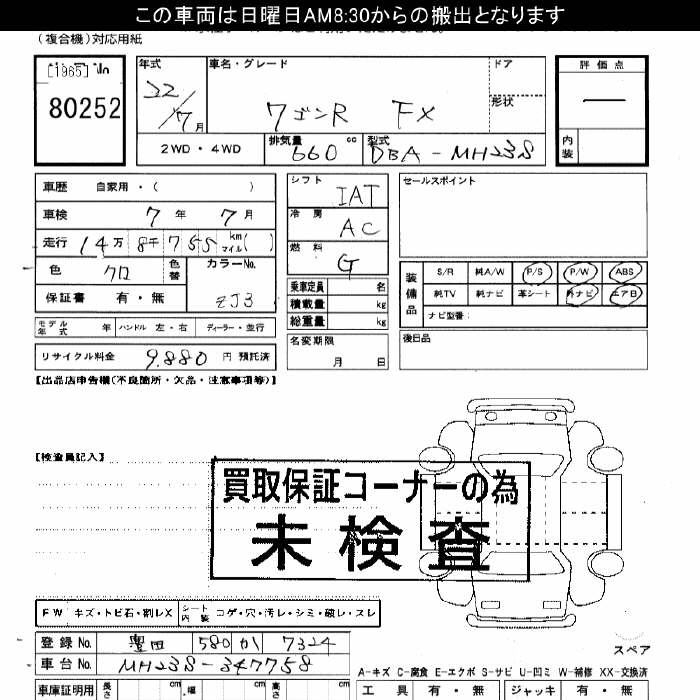 この車両は日曜日AM8:30からの搬出となります
(複合機)対応用紙
[1965]
80252
年式 車名・グレード ドア
22/7月 ワゴンR FX 形状
2WD・4WD 排気量 660 cc 型式 DBA-MH23S
評価点
―
内装
車歴 自家用・( )
車検 7年 7月
走行 14万8千755 km マイル( )
色 クロ 色替 カラーNo.
保証書 有・無 ZJ3
モデル年式 年 ハンドル 左・右 ディーラー・並行
リサイクル料金 9.880 円 預託済
シフト IAT
冷房 AC
燃料 G
乗車定員 名
積載量 kg
総重量 kg
名変期限
月 日
セールスポイント
装備品
S/R 純A/W P/S P/W ABS
純TV 純ナビ 革シート 外ナビ エアB
ナビ型番:
後日品
【出品店申告欄(不良箇所・欠品・注意事項等)】
【検査員記入】
買取保証コーナーの為
未検査
FW キズ・トビ石・割レX シート内装 コゲ・穴・汚レ・シミ・破レ・スレ
登録No. 豊田 580 か 7324
車台No. MH23S-347758
車庫証明用 長さ cm 幅 cm 高さ cm
スペア
A-キズ C-腐食 E-エクボ S-サビ U-凹ミ W-補修 XX-交換済
工具 有・無 ジャッキ 有・無